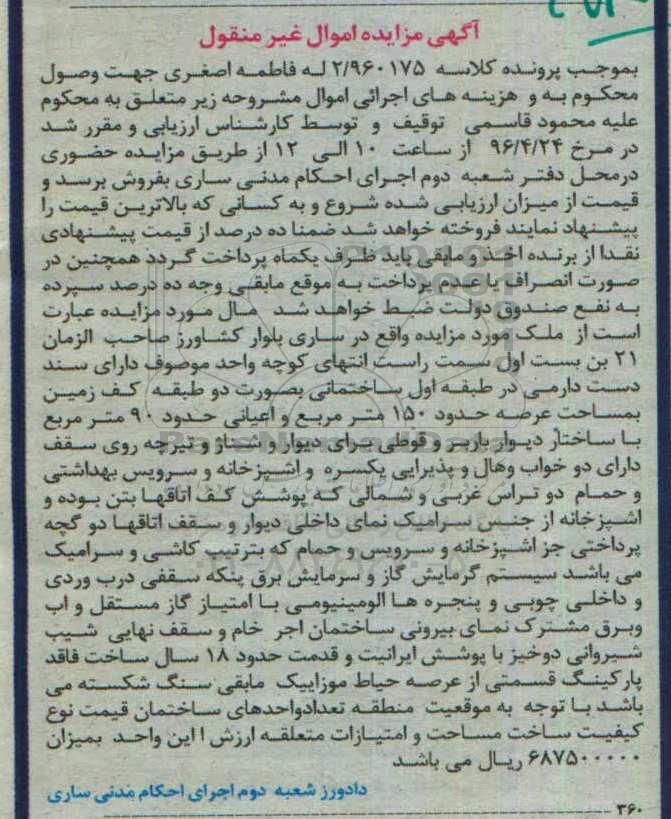 آگهی مزایده اموال غیر منقول
بموجب پرونده کلاسه ۲/۹۶۰۱۷۵ له فاطمه اصغری جهت وصول
محکوم به و هزینه های اجرائی اموال مشروحه زیر متعلق به محکوم
علیه محمود قاسمی توقیف و توسط کارشناس ارزیابی و مقرر شد
در مرخ ۹۶/۴/۲۴ از ساعت ۱۰ الی ۱۲ از طریق مزایده حضوری
درمحل دفتر شعبه دوم اجرای احکام مدنی ساری بفروش برسد و
قیمت از میزان ارزیابی شده شروع و به کسانی که بالاترین قیمت را
پیشنهاد نمایند فروخته خواهد شد ضمنا ده درصد از قیمت پیشنهادی
نقدا از برنده اخذ و مابقی باید ظرف یکماه پرداخت گردد همچنین در
صورت انصراف یا عدم پرداخت به موقع مابقی وجه ده درصد سپرده
به نفع صندوق دولت ضبط خواهد شد مال مورد مزایده عبارت
است از ملک مورد مزایده واقع در ساری بلوار کشاورز صاحب الزمان
۲۱ بن بست اول سمت راست انتهای کوچه واحد موصوف دارای سند
دست دارمی در طبقه اول ساختمانی بصورت دو طبقه کف زمین
بمساحت عرصه حدود ۱۵۰ متر مربع و اعیانی حدود ۹۰ متر مربع
با ساختار دیوار باربر و قوطی برای دیوار و شناژ و تیرچه روی سقف
دارای دو خواب وهال و پذیرایی یکسره و اشپزخانه و سرویس بهداشتی
و حمام دو تراس غربی و شمالی که پوشش کف اتاقها بتن بوده و
اشپزخانه از جنس سرامیک نمای داخلی دیوار و سقف اتاقها دو گچه
پرداختی جز اشپزخانه و سرویس و حمام که بترتیب کاشی و سرامیک
می باشد سیستم گرمایش گاز و سرمایش برق پنکه سقفی درب وردی
و داخلی چوبی و پنجره ها الومینیومی با امتیاز گاز مستقل و اب
وبرق مشترک نمای بیرونی ساختمان اجر خام و سقف نهایی شیب
شیروانی دوخیز با پوشش ایرانیت و قدمت حدود ۱۸ سال ساخت فاقد
پارکینگ قسمتی از عرصه حیاط موزاییک مابقی سنگ شکسته می
باشد با توجه به موقعیت منطقه تعدادواحدهای ساختمان قیمت نوع
کیفیت ساخت مساحت و امتیازات متعلقه ارزش ا این واحد بمیزان
۶۸۷۵۰۰۰۰۰ ریال می باشد
دادورز شعبه دوم اجرای احکام مدنی ساری
۳۶۰